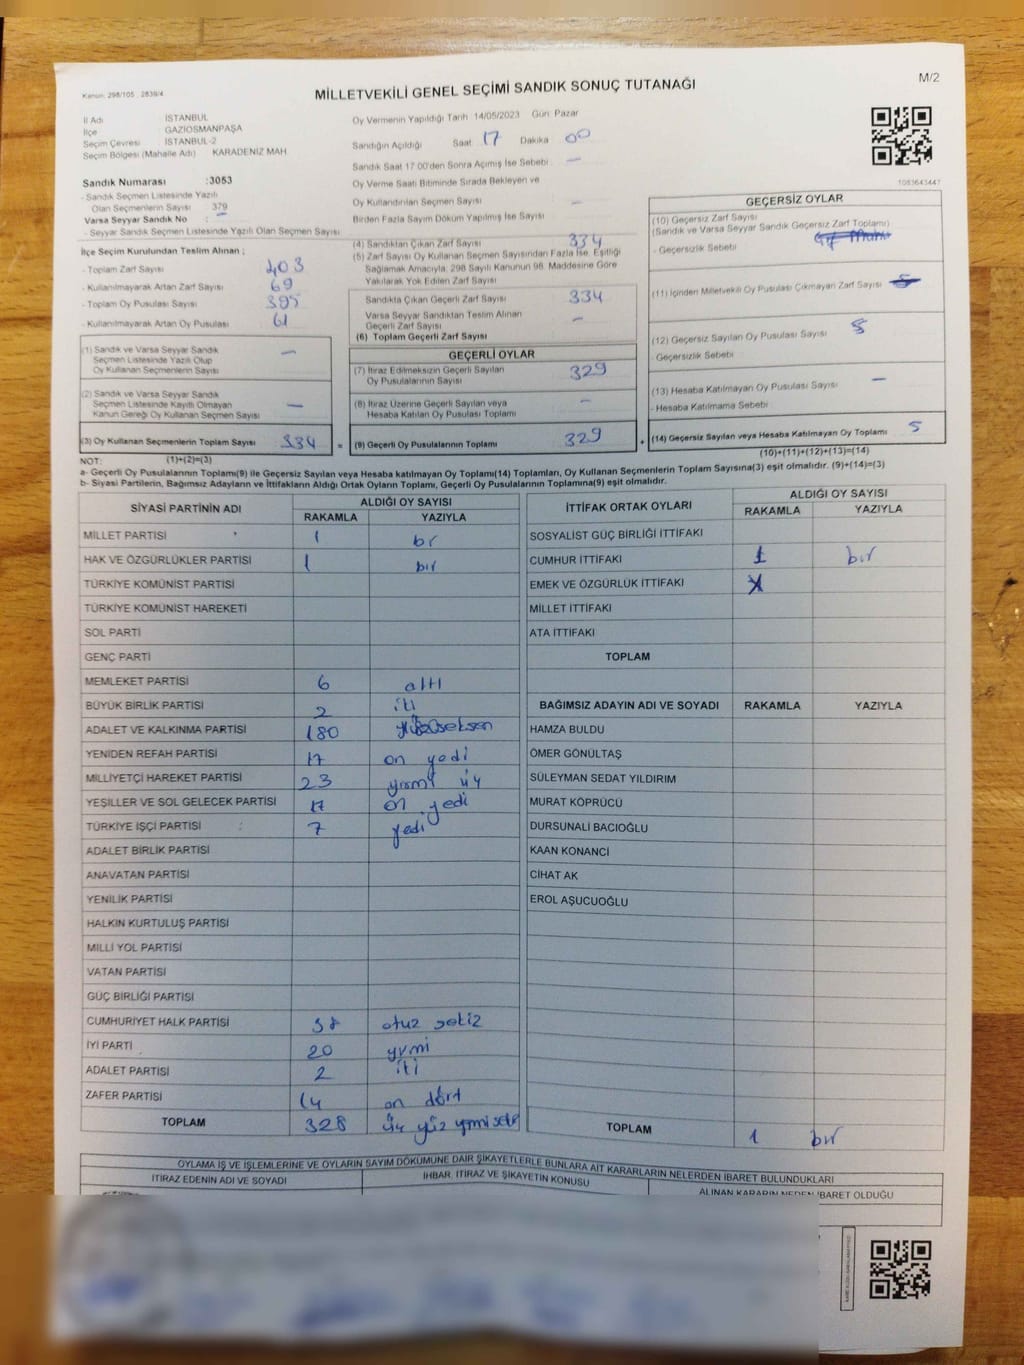 Kanun: 298/105 , 2839/4
MİLLETVEKİLİ GENEL SEÇİMİ SANDIK SONUÇ TUTANAĞI
M/2
İl Adı : İSTANBUL
İlçe : GAZİOSMANPAŞA
Seçim Çevresi : İSTANBUL-2
Seçim Bölgesi (Mahalle Adı) : KARADENİZ MAH.
Oy Vermenin Yapıldığı Tarih 14/05/2023 Gün Pazar
Sandığın Açıldığı Saat 17 Dakika 00
Sandık Saat 17:00'den Sonra Açılmış İse Sebebi —
Oy Verme Saati Bitiminde Sırada Bekleyen ve
Oy Kullandırılan Seçmen Sayısı —
Birden Fazla Sayım Döküm Yapılmış İse Sayısı
1083643447
Sandık Numarası :3053
- Sandık Seçmen Listesinde Yazılı
Olan Seçmenlerin Sayısı 379
Varsa Seyyar Sandık No : —
- Seyyar Sandık Seçmen Listesinde Yazılı Olan Seçmen Sayısı
İlçe Seçim Kurulundan Teslim Alınan ;
- Toplam Zarf Sayısı 403
- Kullanılmayarak Artan Zarf Sayısı 69
- Toplam Oy Pusulası Sayısı 395
- Kullanılmayarak Artan Oy Pusulası 61
(1) Sandık ve Varsa Seyyar Sandık
Seçmen Listesinde Yazılı Olup
Oy Kullanan Seçmenlerin Sayısı —
(2) Sandık ve Varsa Seyyar Sandık
Seçmen Listesinde Kayıtlı Olmayan
Kanun Gereği Oy Kullanan Seçmen Sayısı —
(3) Oy Kullanan Seçmenlerin Toplam Sayısı 334 =
(4) Sandıktan Çıkan Zarf Sayısı 334
(5) Zarf Sayısı Oy Kullanan Seçmen Sayısından Fazla İse, Eşitliği
Sağlamak Amacıyla, 298 Sayılı Kanunun 98. Maddesine Göre
Yakılarak Yok Edilen Zarf Sayısı
Sandıkta Çıkan Geçerli Zarf Sayısı 334
Varsa Seyyar Sandıktan Teslim Alınan
Geçerli Zarf Sayısı —
(6) Toplam Geçerli Zarf Sayısı
GEÇERLİ OYLAR
(7) İtiraz Edilmeksizin Geçerli Sayılan
Oy Pusulalarının Sayısı 329
(8) İtiraz Üzerine Geçerli Sayılan veya
Hesaba Katılan Oy Pusulası Toplamı —
(9) Geçerli Oy Pusulalarının Toplamı 329 +
GEÇERSİZ OYLAR
(10) Geçersiz Zarf Sayısı
(Sandık ve Varsa Seyyar Sandık Geçersiz Zarf Toplamı)
- Geçersizlik Sebebi
(11) İçinden Milletvekili Oy Pusulası Çıkmayan Zarf Sayısı
(12) Geçersiz Sayılan Oy Pusulası Sayısı 5
- Geçersizlik Sebebi
(13) Hesaba Katılmayan Oy Pusulası Sayısı —
- Hesaba Katılmama Sebebi
(14) Geçersiz Sayılan veya Hesaba Katılmayan Oy Toplamı 5
NOT: (1)+(2)=(3) (10)+(11)+(12)+(13)=(14)
a- Geçerli Oy Pusulalarının Toplamı(9) ile Geçersiz Sayılan veya Hesaba katılmayan Oy Toplamı(14) Toplamları, Oy Kullanan Seçmenlerin Toplam Sayısına(3) eşit olmalıdır. (9)+(14)=(3)
b- Siyasi Partilerin, Bağımsız Adayların ve İttifakların Aldığı Ortak Oyların Toplamı, Geçerli Oy Pusulalarının Toplamına(9) eşit olmalıdır.
SİYASİ PARTİNİN ADI ALDIĞI OY SAYISI
RAKAMLA YAZIYLA
MİLLET PARTİSİ 1 br
HAK VE ÖZGÜRLÜKLER PARTİSİ 1 bir
TÜRKİYE KOMÜNİST PARTİSİ
TÜRKİYE KOMÜNİST HAREKETİ
SOL PARTİ
GENÇ PARTİ
MEMLEKET PARTİSİ 6 altı
BÜYÜK BİRLİK PARTİSİ 2 iki
ADALET VE KALKINMA PARTİSİ 180 yüzseksen
YENİDEN REFAH PARTİSİ 17 on yedi
MİLLİYETÇİ HAREKET PARTİSİ 23 yirmi üç
YEŞİLLER VE SOL GELECEK PARTİSİ 17 on yedi
TÜRKİYE İŞÇİ PARTİSİ 7 yedi
ADALET BİRLİK PARTİSİ
ANAVATAN PARTİSİ
YENİLİK PARTİSİ
HALKIN KURTULUŞ PARTİSİ
MİLLİ YOL PARTİSİ
VATAN PARTİSİ
GÜÇ BİRLİĞİ PARTİSİ
CUMHURİYET HALK PARTİSİ 38 otuz sekiz
İYİ PARTİ 20 yirmi
ADALET PARTİSİ 2 iki
ZAFER PARTİSİ 14 on dört
TOPLAM 328 üç yüz yirmi sekiz
İTTİFAK ORTAK OYLARI ALDIĞI OY SAYISI
RAKAMLA YAZIYLA
SOSYALİST GÜÇ BİRLİĞİ İTTİFAKI
CUMHUR İTTİFAKI 1 bir
EMEK VE ÖZGÜRLÜK İTTİFAKI
MİLLET İTTİFAKI
ATA İTTİFAKI
TOPLAM
BAĞIMSIZ ADAYIN ADI VE SOYADI RAKAMLA YAZIYLA
HAMZA BULDU
ÖMER GÖNÜLTAŞ
SÜLEYMAN SEDAT YILDIRIM
MURAT KÖPRÜCÜ
DURSUNALİ BACIOĞLU
KAAN KONANCİ
CİHAT AK
EROL AŞUCUOĞLU
TOPLAM 1 bir
OYLAMA İŞ VE İŞLEMLERİNE VE OYLARIN SAYIM DÖKÜMÜNE DAİR ŞİKAYETLERLE BUNLARA AİT KARARLARIN NELERDEN İBARET BULUNDUKLARI
İTİRAZ EDENİN ADI VE SOYADI İHBAR, İTİRAZ VE ŞİKAYETİN KONUSU ALINAN KARARIN NEDEN İBARET OLDUĞU